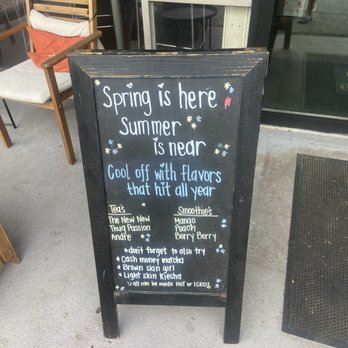 Spring is here
Summer
is near
Cool off with flavors
that hit all year
Tea's
The New New
Thug Passion
Andre
Smoothie's
Mango
Peach
Berry Berry
*don't forget to also try
*Cash money matcha
*Brown skin girl
*Light skin Kiesha
*all can be made HOT or ICED!